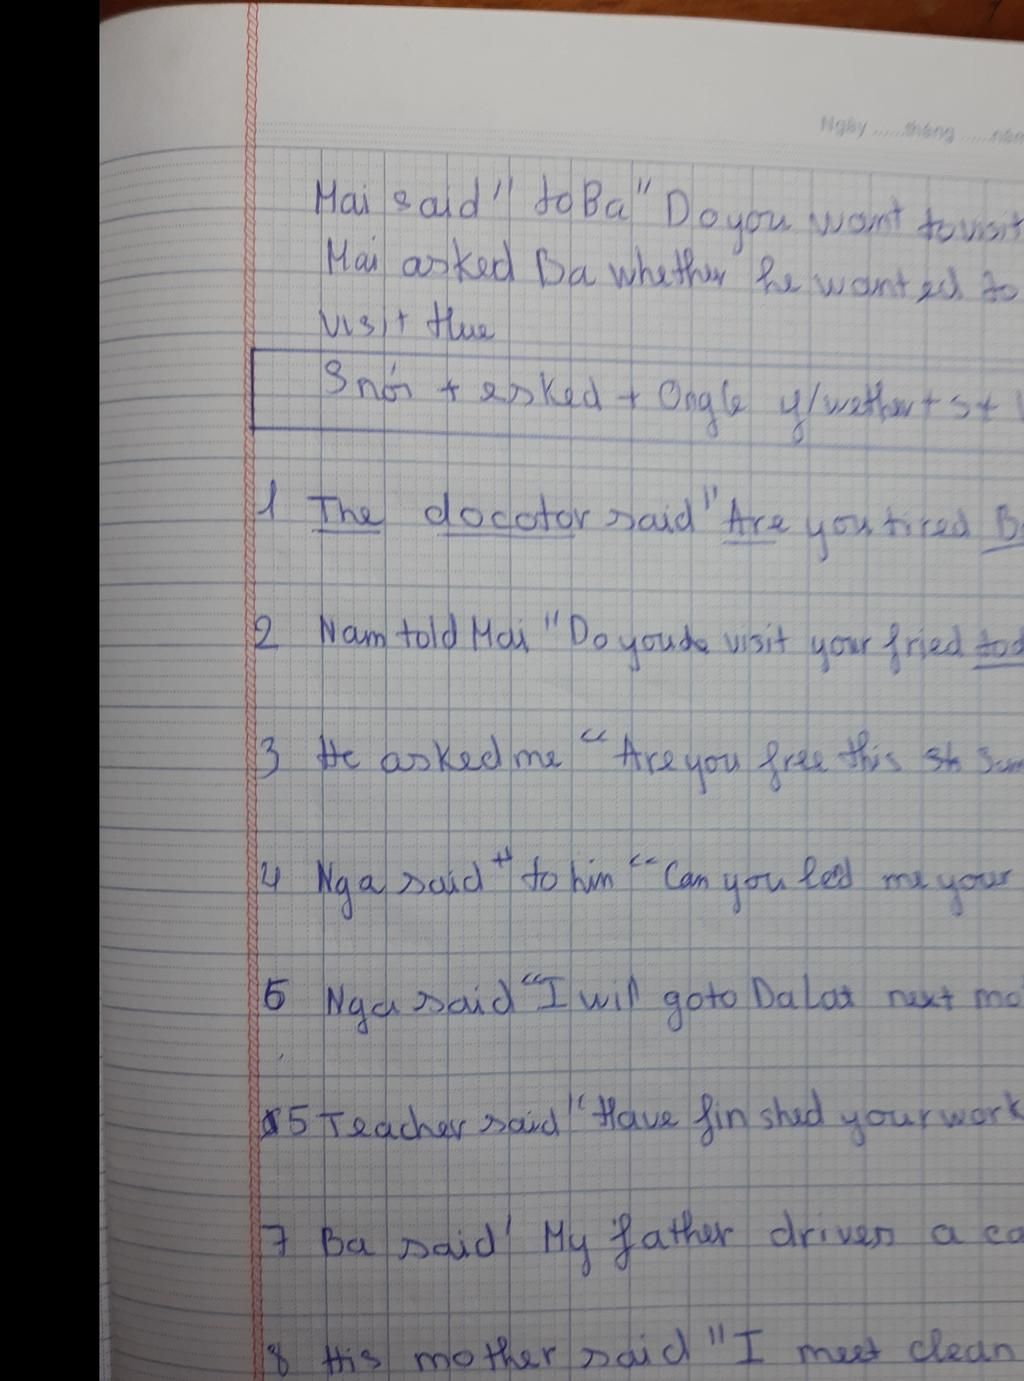 Ngày ...... tháng ...... năm
Mai said" to Ba" Do you want to visit
Mai asked Ba whether he wanted to
visit Hue
S nói + asked + Ongle y/wether + S +
1 The docotor said" Are you tired Ba
2 Nam told Mai "Do you to visit your fried tod
3 He asked me "Are you free this Sun
4 Nga said" to him "Can you led me your
5 Nga said "I will go to Da Lat next mo
5 Teacher said "Have finshed your work
7 Ba said' My father drives a ca
8 His mother said "I meet clean